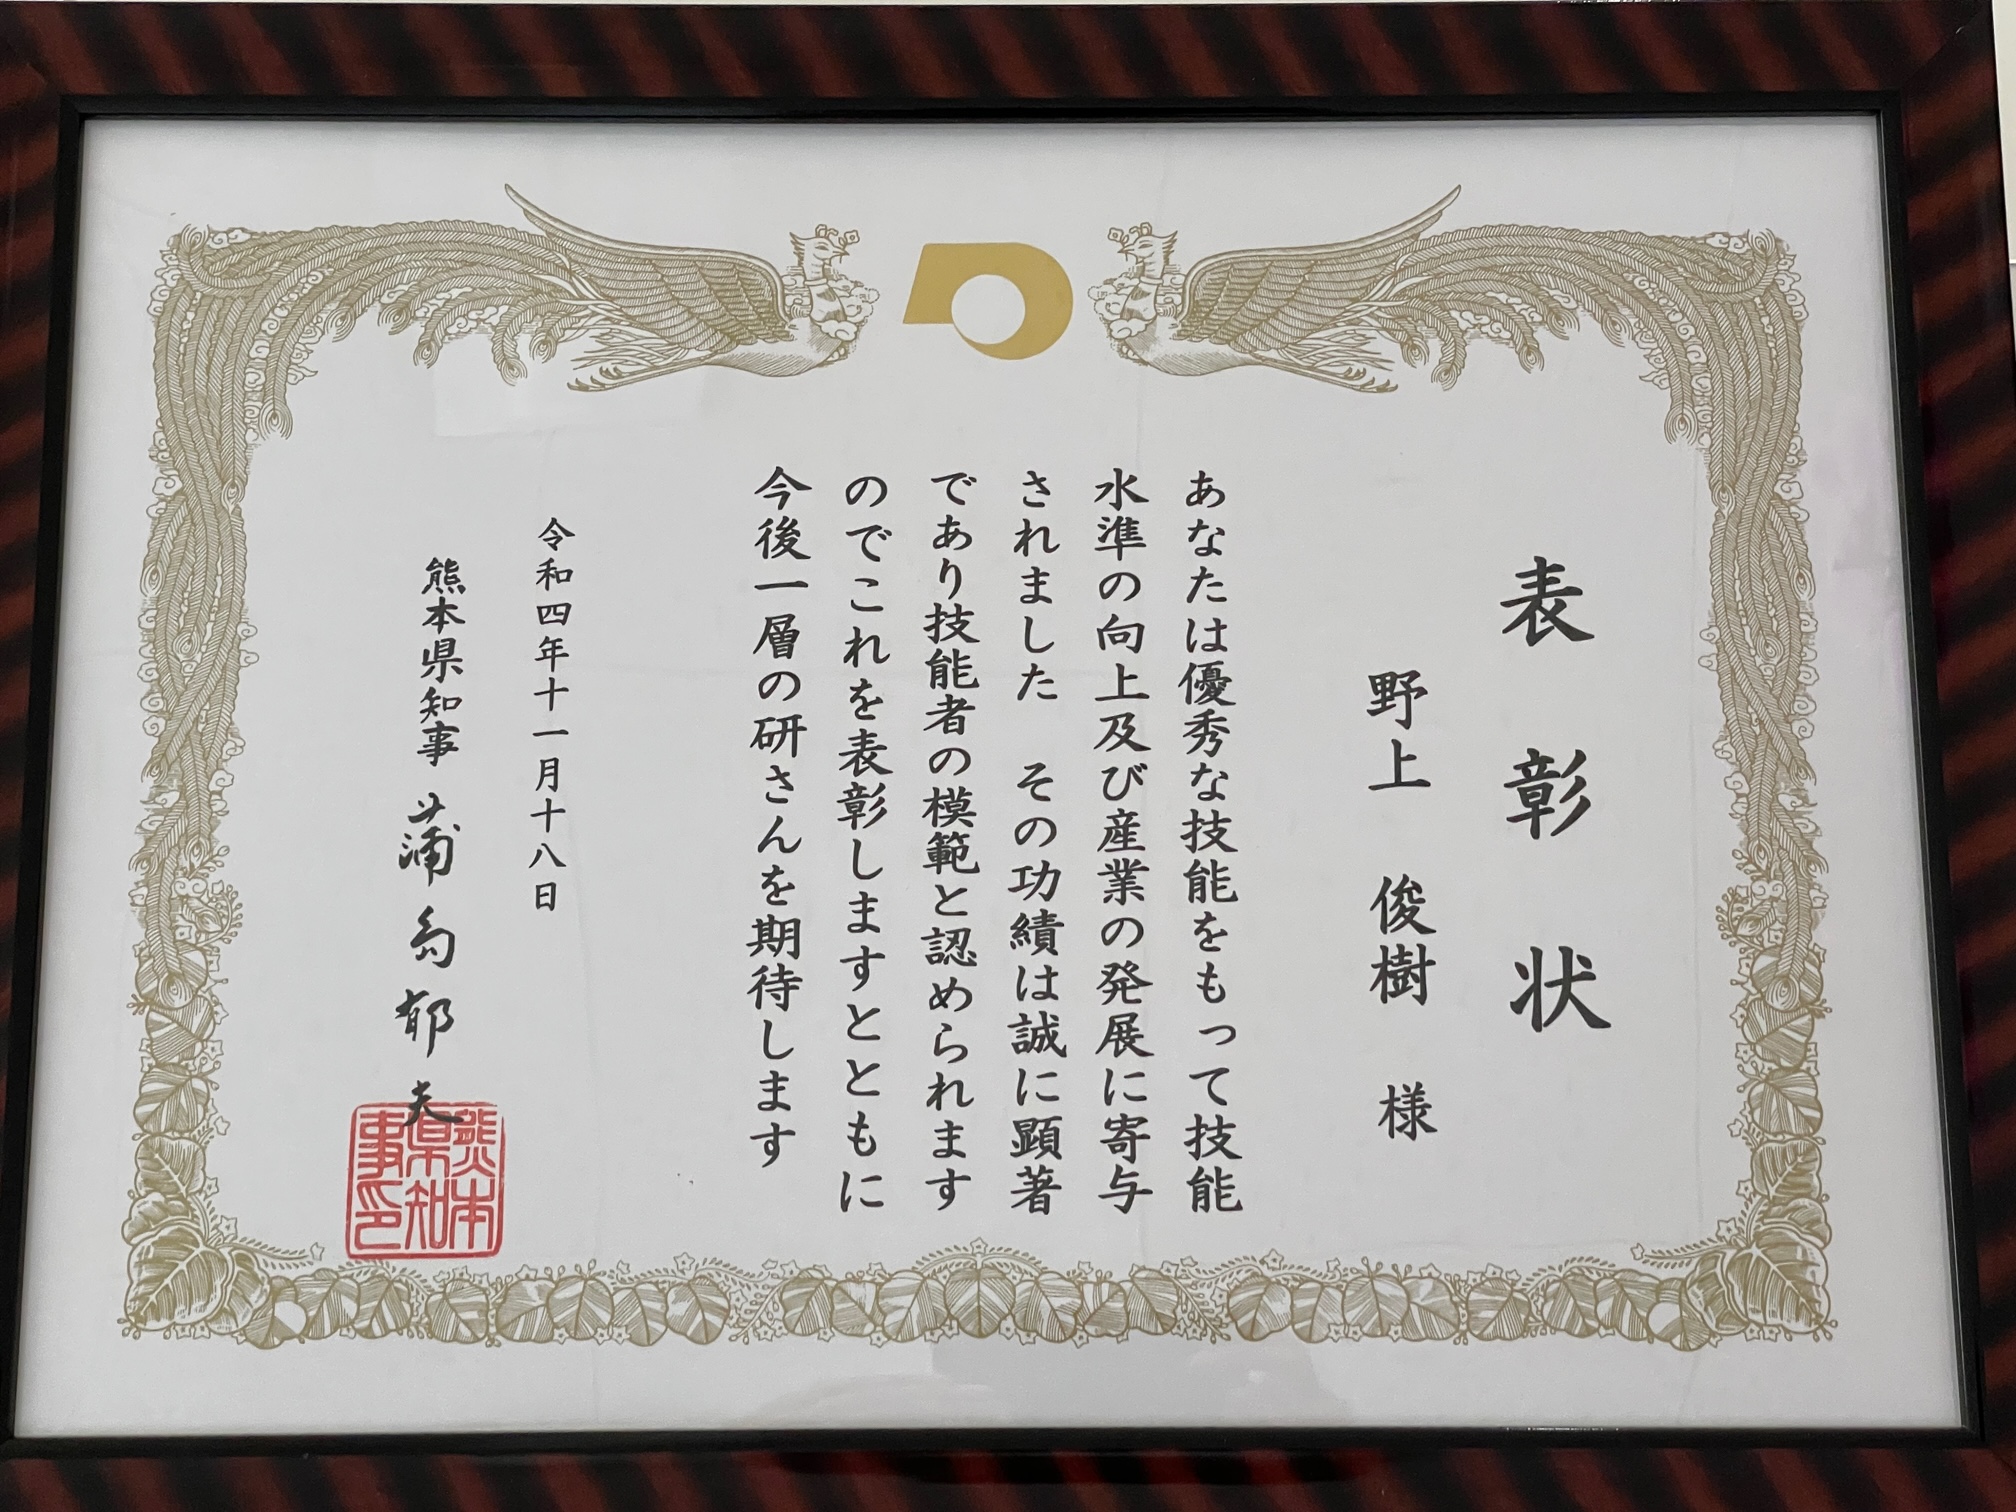 表彰状
野上 俊樹 様
あなたは優秀な技能をもって技能
水準の向上及び産業の発展に寄与
されました その功績は誠に顕著
であり技能者の模範と認められます
のでこれを表彰しますとともに
今後一層の研さんを期待します
令和四年十一月十八日
熊本県知事 蒲島郁夫
熊本県知事印